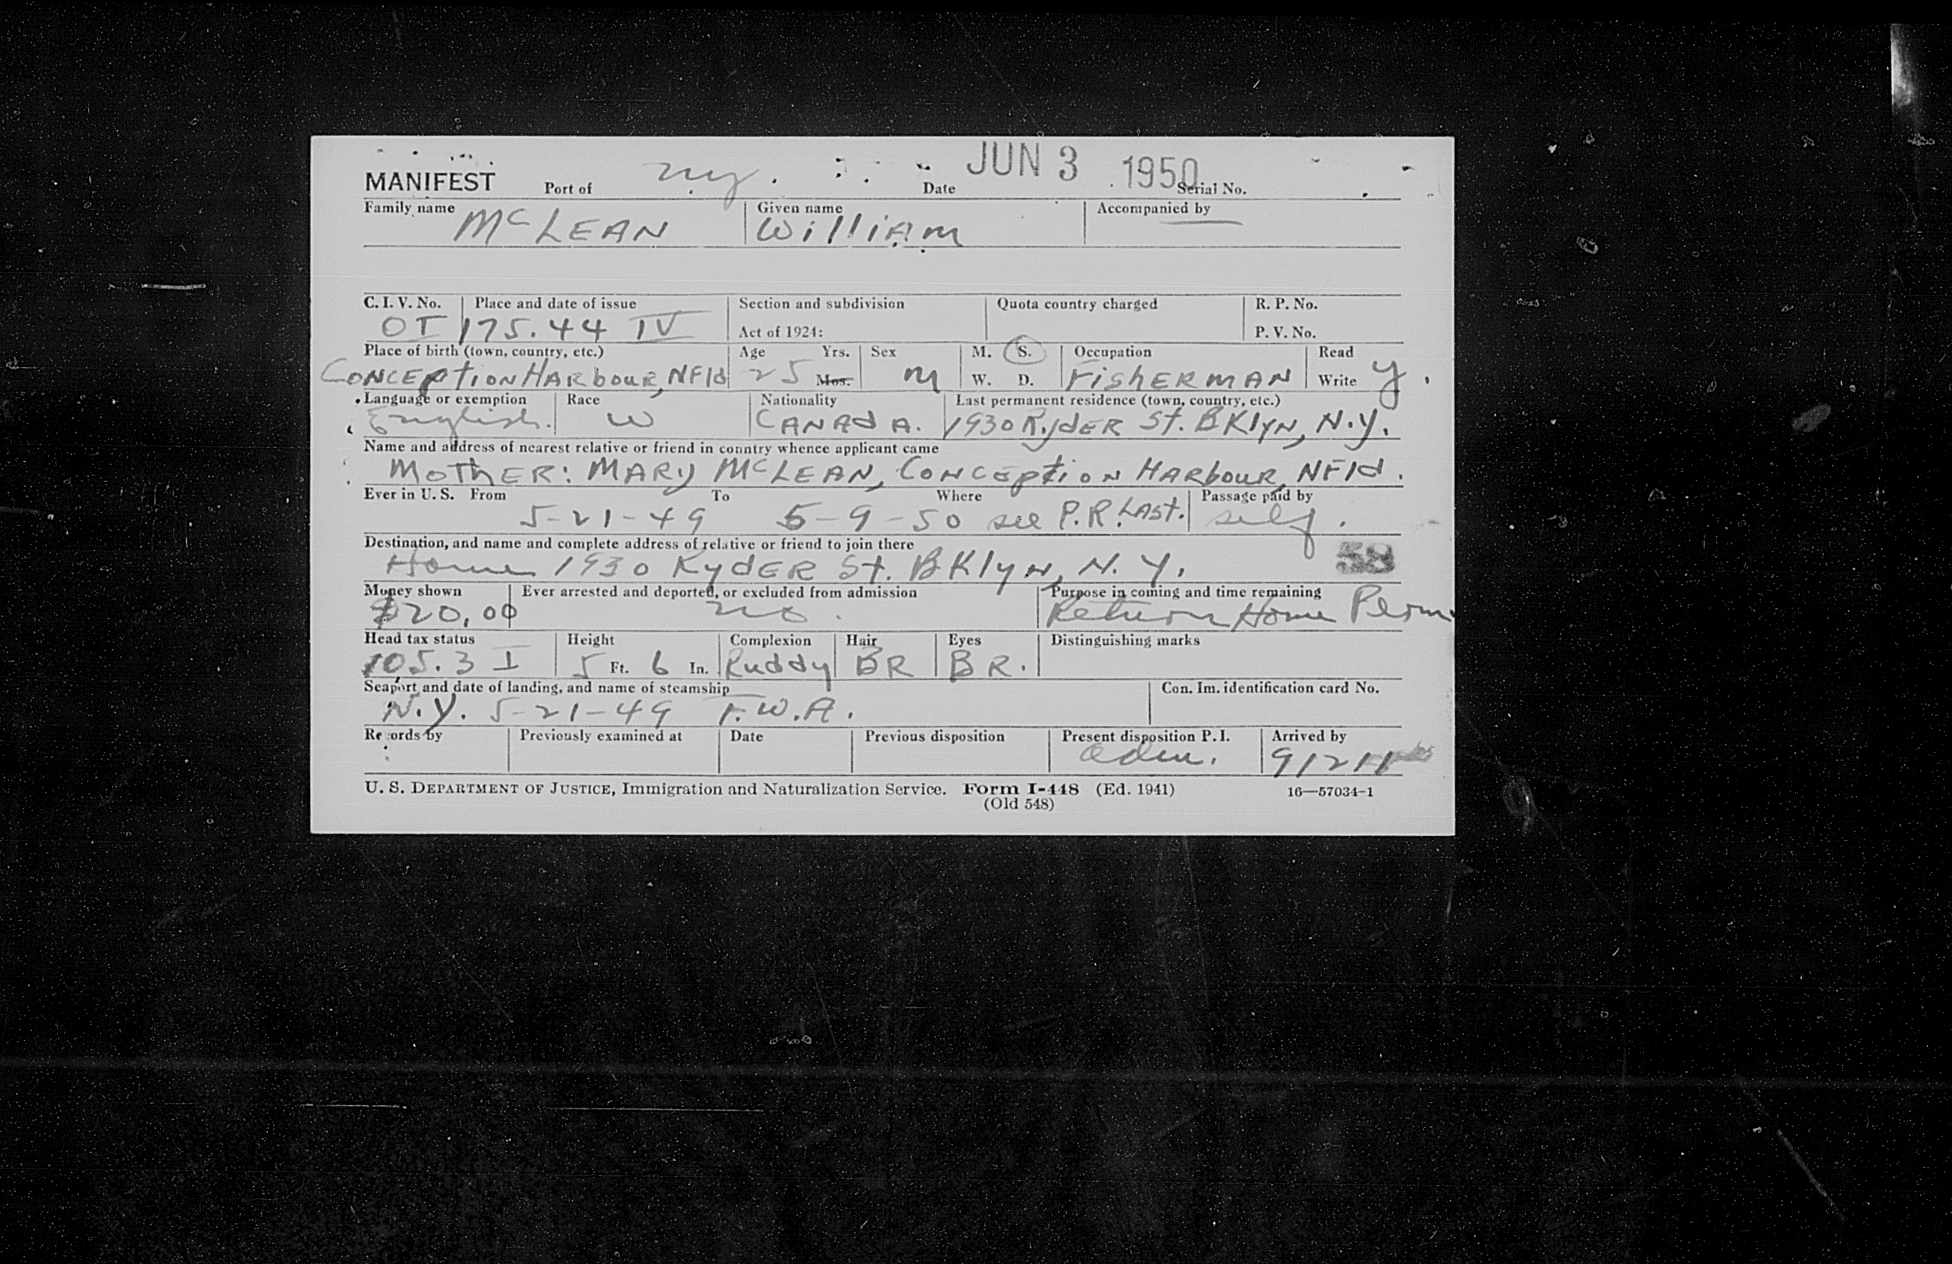 JUN 3 1950
MANIFEST Port of N.Y. Date Serial No.
Family name Given name Accompanied by
McLEAN William
C. I. V. No. Place and date of issue Section and subdivision Quota country charged R. P. No.
OI 175.44 IV Act of 1924: P. V. No.
Place of birth (town, country, etc.) Age Yrs. Sex M. S. Occupation Read
CONCEPTION HARBOUR, NFld 25 Mos. M W. D. FISHERMAN Write Y.
Language or exemption Race Nationality Last permanent residence (town, country, etc.)
English. W CANADA. 1930 RyDER St. BKlyN, N.Y.
Name and address of nearest relative or friend in country whence applicant came
MOTHER: MARY McLEAN, CONCEPTION HARBOUR, NFld.
Ever in U. S. From To Where Passage paid by
5-21-49 5-9-50 see P.R. LAST. self.
Destination, and name and complete address of relative or friend to join there
Home 1930 RyDER St. BKlyN, N.Y. 58
Money shown Ever arrested and deported, or excluded from admission Purpose in coming and time remaining
$20.00 no. Return Home Perm
Head tax status Height Complexion Hair Eyes Distinguishing marks
105.3 I 5 Ft. 6 In. Ruddy BR BR.
Seaport and date of landing, and name of steamship Con. Im. identification card No.
N.Y. 5-21-49 T.W.A.
Records by Previously examined at Date Previous disposition Present disposition P. I. Arrived by
adm. 91211
U. S. DEPARTMENT OF JUSTICE, Immigration and Naturalization Service. Form I-448 (Ed. 1941) 16—57034-1
(Old 548)